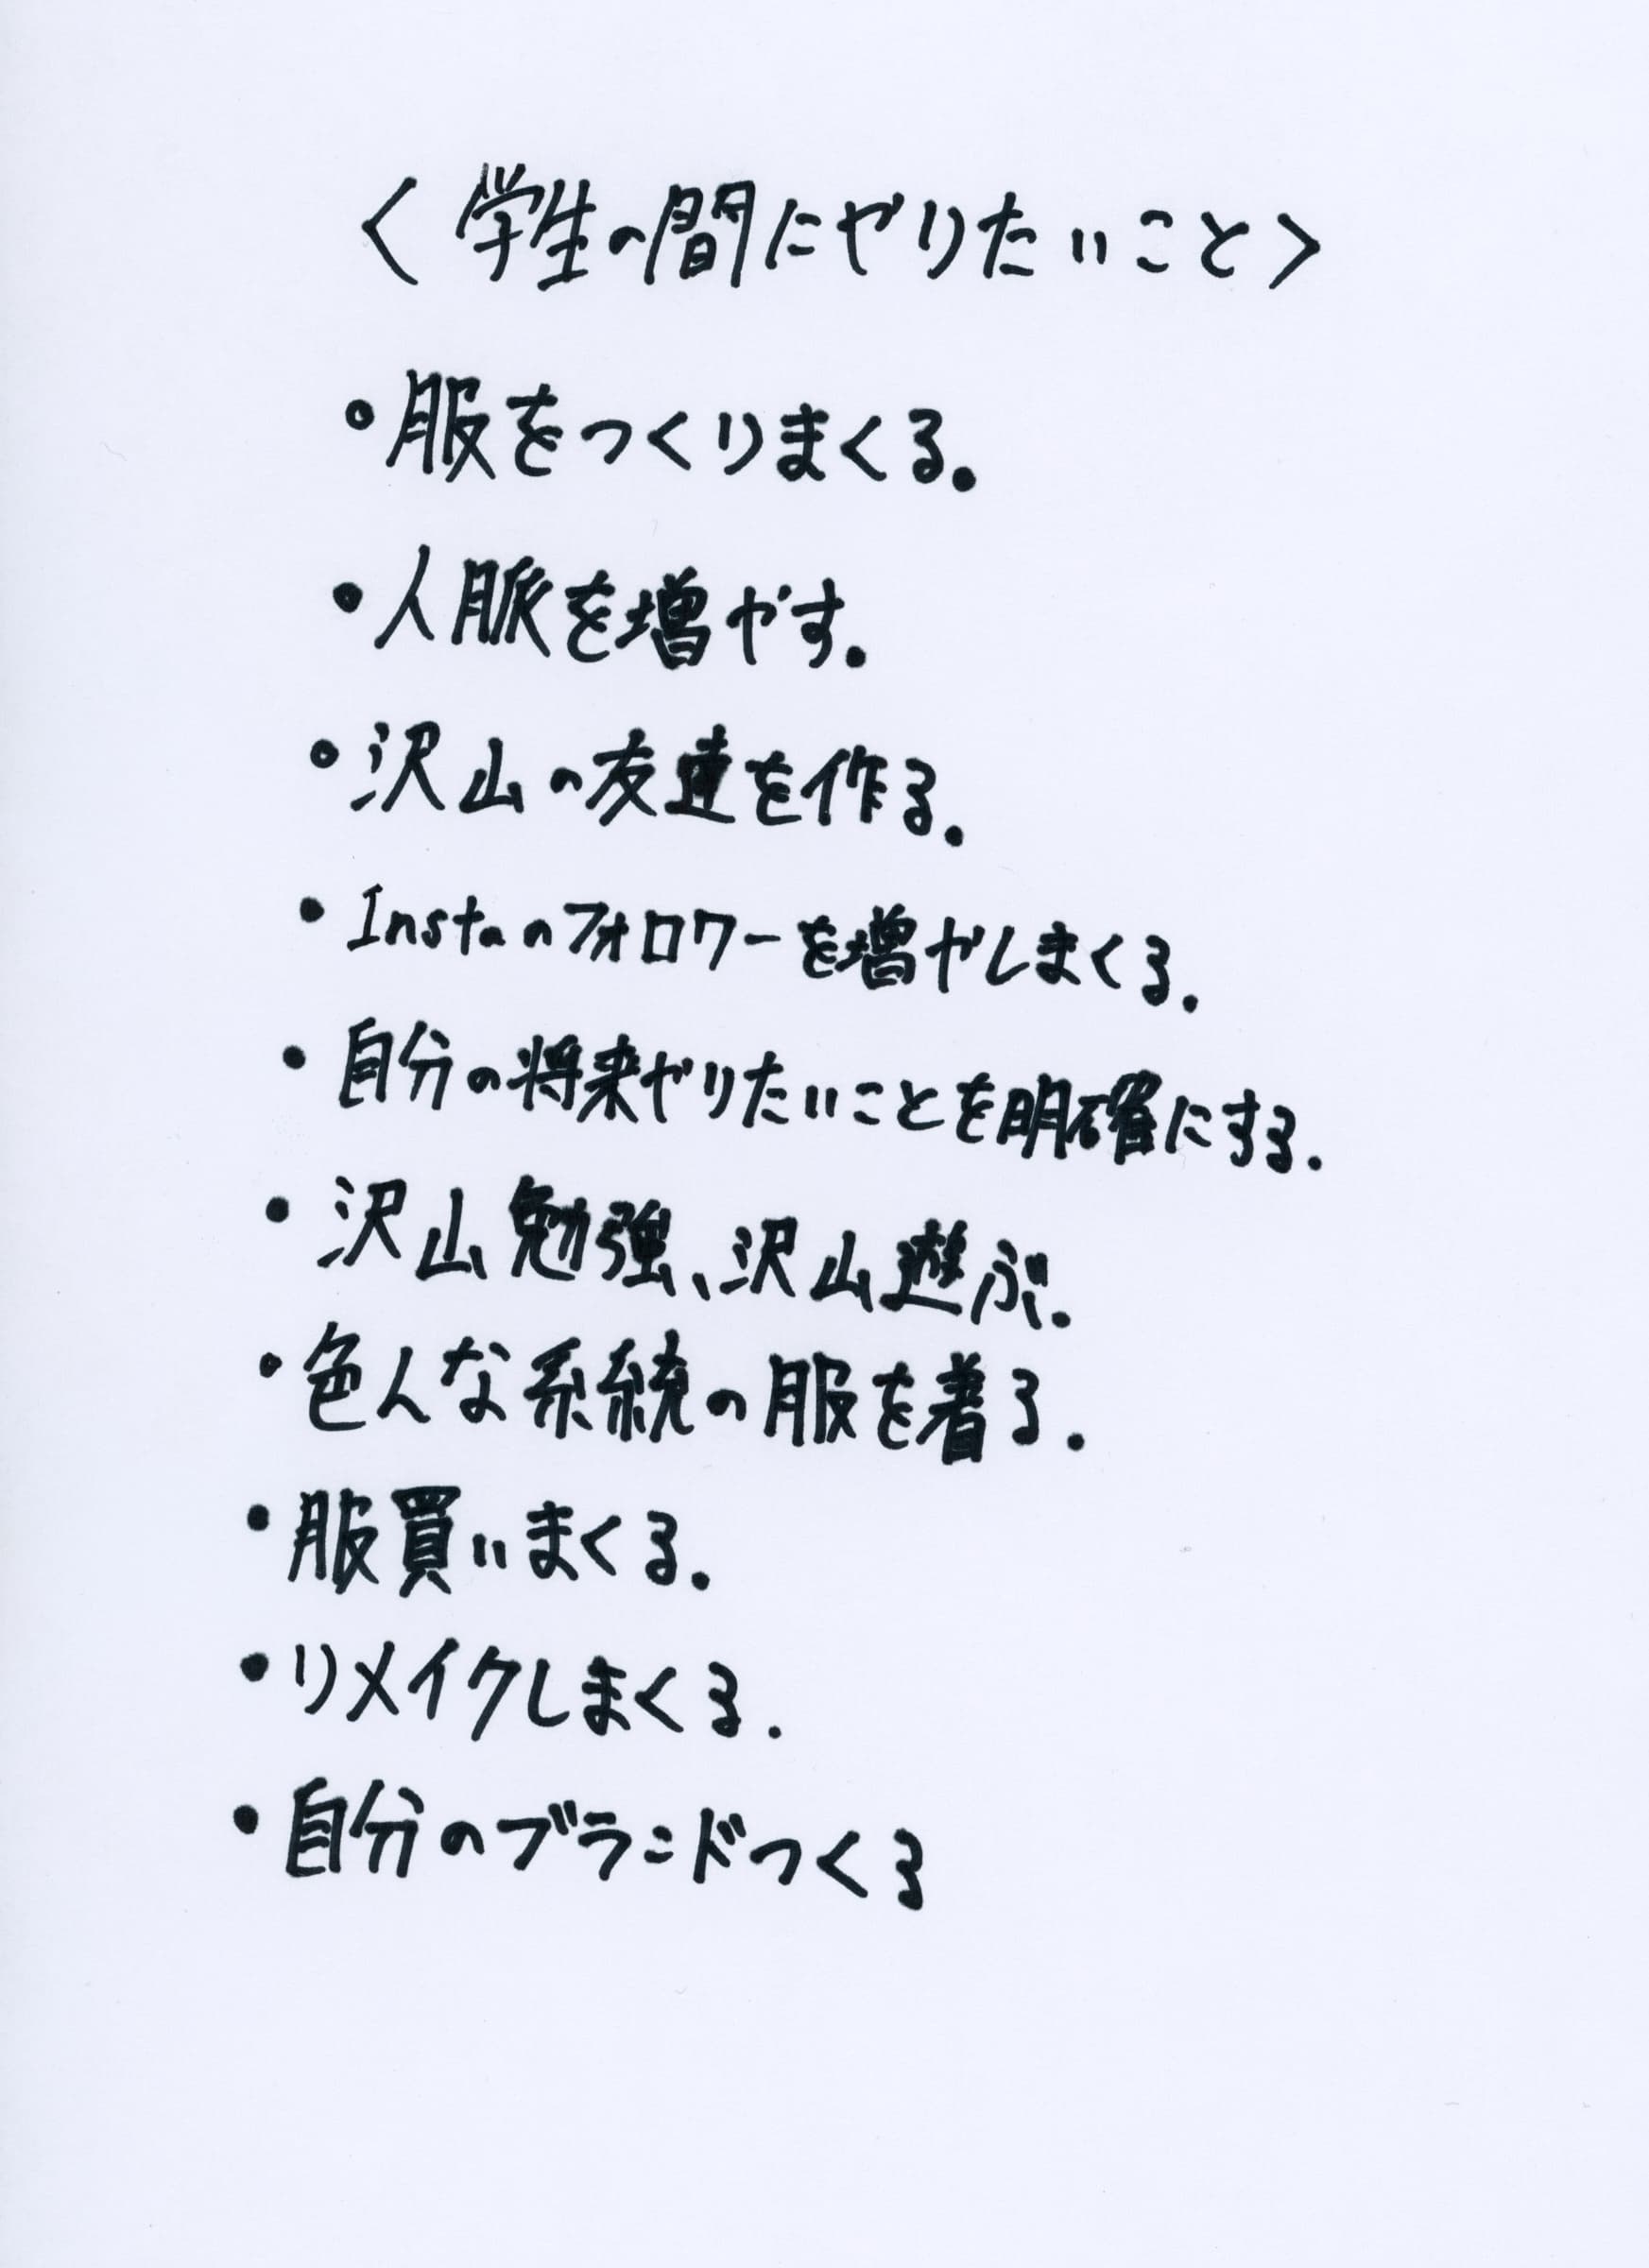 ＜学生の間にやりたいこと＞
・服をつくりまくる。
・人脈を増やす.
・沢山の友達を作る.
・Instaのフォロワーを増やしまくる.
・自分の将来やりたいことを明確にする.
・沢山勉強、沢山遊ぶ.
・色んな系統の服を着る.
・服買いまくる.
・リメイクしまくる.
・自分のブランドつくる